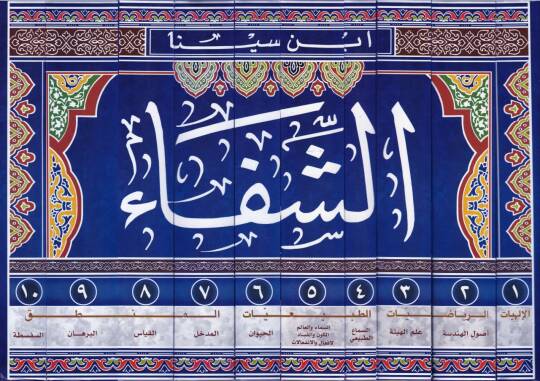 ابن سينا
الشفاء
١ ٢ ٣ ٤ ٥ ٦ ٧ ٨ ٩ ١٠
الإلهيات الرياضيات الطبيعيات المنطق
أصول الهندسة
علم الهيئة
السماع الطبيعي
السماء والعالم
الكون والفساد
الافعال والانفعالات
الحيوان
المدخل
القياس
البرهان
السفسطة